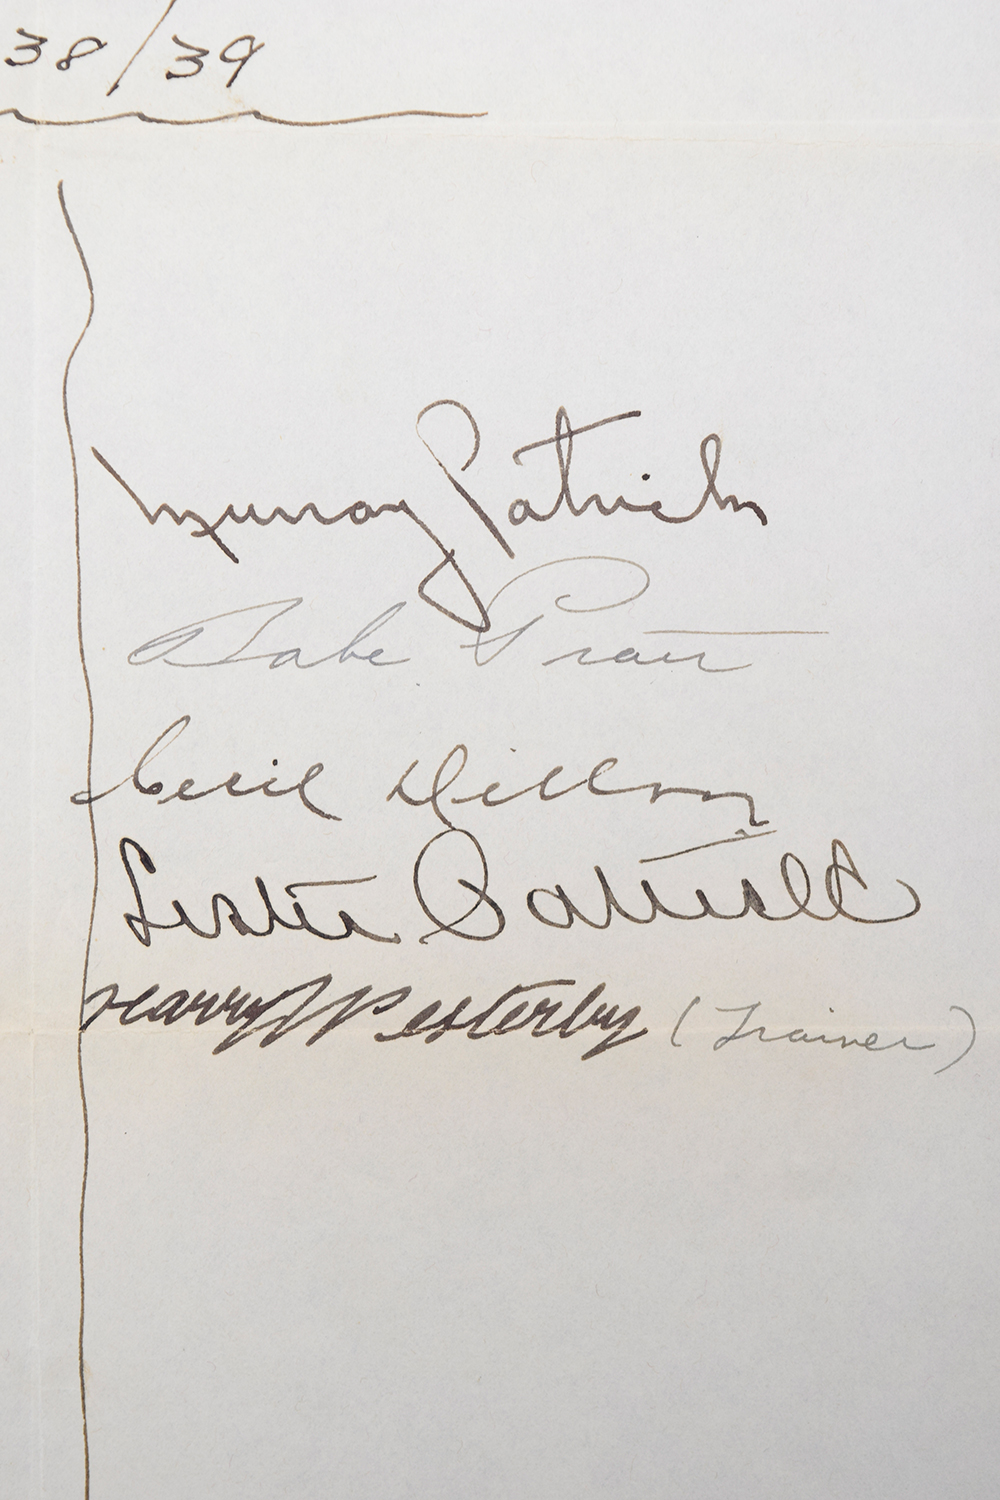 38/39
Murray Patrick
Babe Pratt
Cecil Dillon
Lester Patrick
Harry Westerby (Trainer)